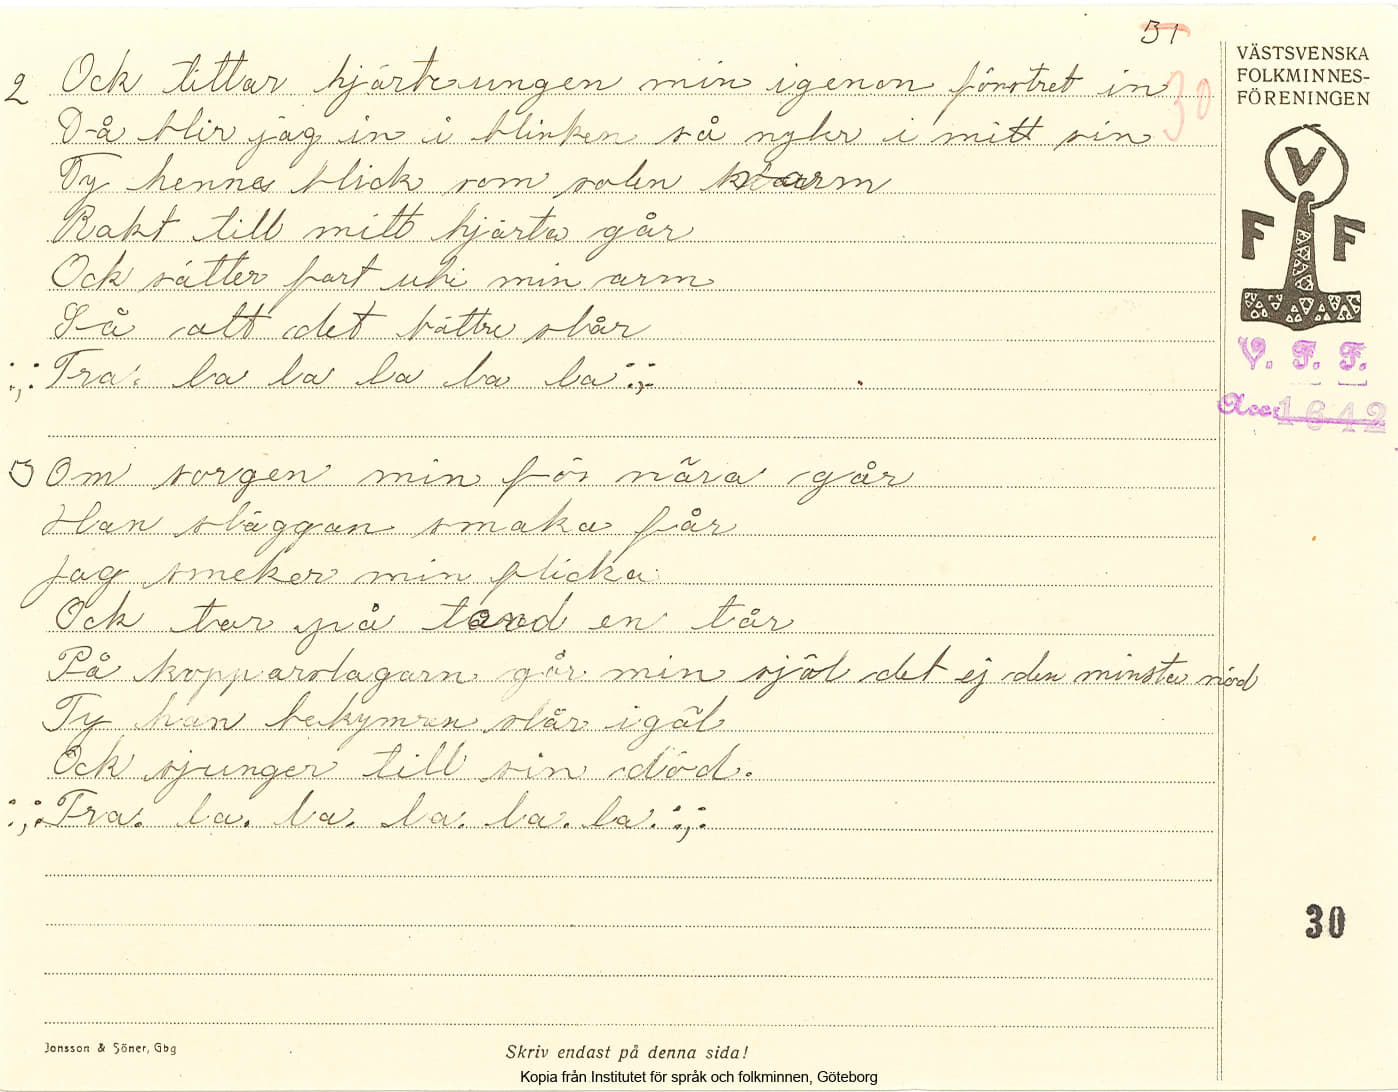 31
30
VÄSTSVENSKA
FOLKMINNES-
FÖRENINGEN
V
F F
V. F. F.
Acc: 1642
2 Ock tittar hjärteungen min igenon fönstret in
Då blir jag in i blinken så nyker i mitt sin
Ty hennes blick som solen varm
Rakt till mitt hjärta går
Ock sätter fart uti min arm
Så att det bättre slår
:,: Tra. la la la la la :,:
3 Om sorgen min för nära går
Han släggan smaka får
Jag smeker min flicka
Ock tar på tand en tår
På kopparslagarn går min själ det ej den minsta nöd
Ty han bekymren slår igäl
Ock sjunger till sin död.
:,: Tra. la. la. la. la. la. :,:
30
Jonsson & Söner, Gbg
Skriv endast på denna sida!
Kopia från Institutet för språk och folkminnen, Göteborg